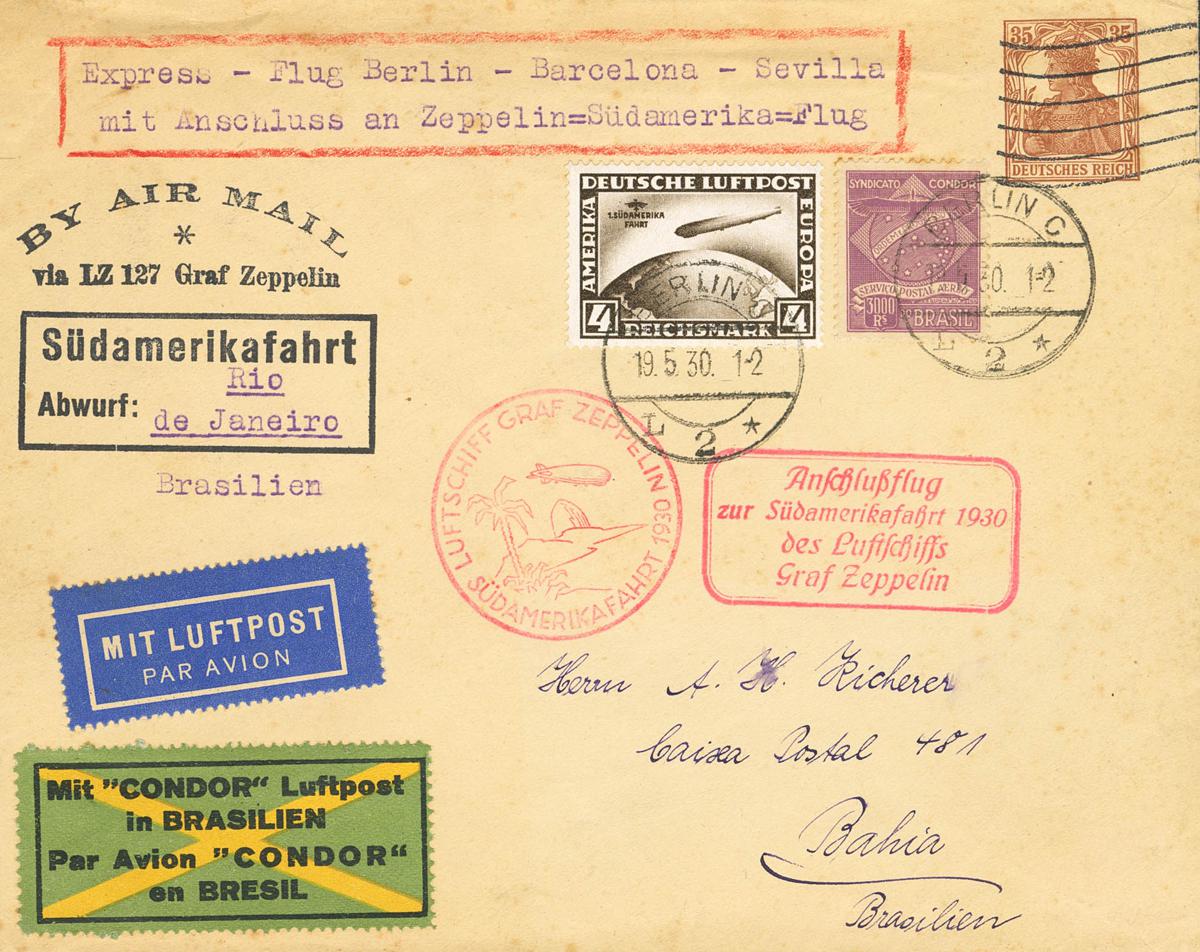 Express - Flug Berlin - Barcelona - Sevilla
mit Anschluss an Zeppelin=Südamerika=Flug
35 35
DEUTSCHES REICH
BY AIR MAIL
*
via LZ 127 Graf Zeppelin
Südamerikafahrt
Abwurf: Rio
de Janeiro
Brasilien
DEUTSCHE LUFTPOST
AMERIKA
EUROPA
1. SÜDAMERIKA
FAHRT
4 REICHSMARK 4
SYNDICATO CONDOR
SERVIÇO POSTAL AEREO
3000
Rs
BRASIL
BERLIN C
19.5.30. 1-2
L 2 *
BERLIN C
5.30. 1-2
L 2 *
LUFTSCHIFF GRAF ZEPPELIN
SÜDAMERIKAFAHRT 1930
Anschlußflug
zur Südamerikafahrt 1930
des Luftschiffs
Graf Zeppelin
MIT LUFTPOST
PAR AVION
Mit "CONDOR" Luftpost
in BRASILIEN
Par Avion "CONDOR"
en BRESIL
Herrn A. H. Richerer
Caixa Postal 481
Bahia
Brasilien